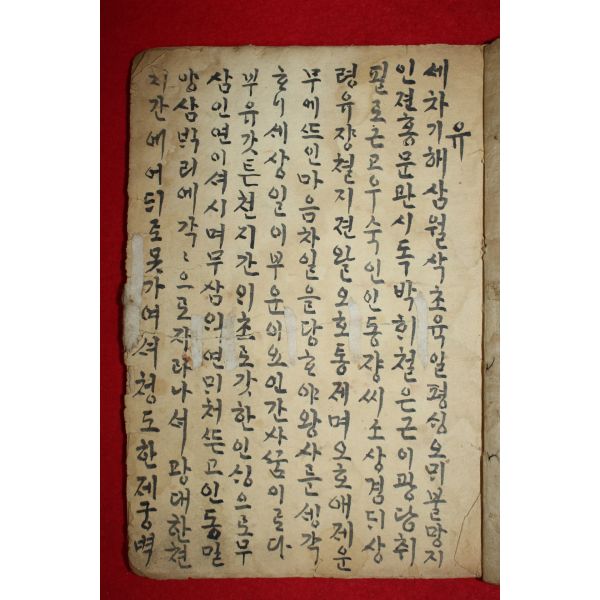 유
세차기해삼월삭초육일평싱오믹불망지
인젼홍문관시독박희철은근이광당취
필로근고우숙인인동쟝씨죠상겸듸상
령유쟝쳘지젼왈오호통졔며오호애졔운
무에쓰인마음차일을당ᄒᆞ야왕사른ᄉᆡᆼ각
ᄒᆞ니세상일이부운이요인간사꿈이로다
부유갓튼쳔지간의초로갓한인싱으로무
삼인연이셔시며무삼의연미쳐쓴고인동믿
양삼박리예각〻으로자라나셔광대한현
지간에어듸로못가여셔쳥도한졔궁벽